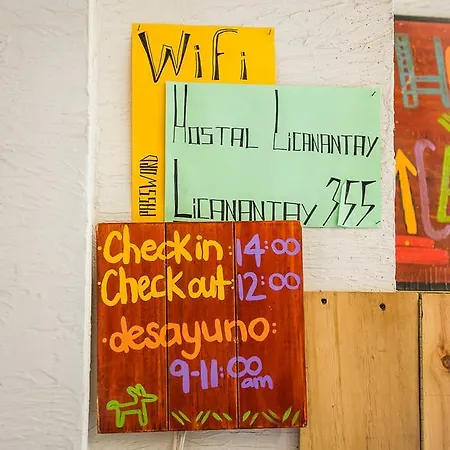 WiFi
PASSWORD
HOSTAL LICANANTAY
LICANANTAY 355
Check in: 14:00
Check out: 12:00
desayuno:
9-11:00 am